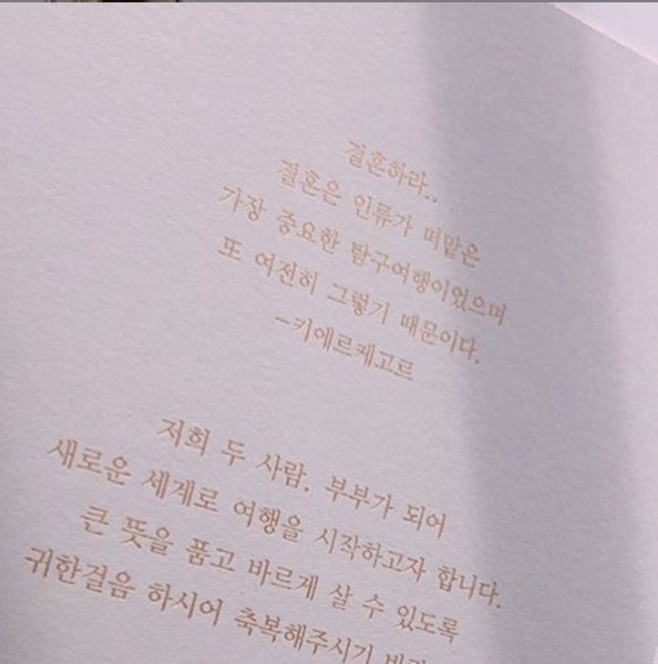 결혼하라..
결혼은 인류가 떠맡은
가장 중요한 탐구여행이었으며
또 여전히 그렇기 때문이다.
-키에르케고르
저희 두 사람. 부부가 되어
새로운 세계로 여행을 시작하고자 합니다.
큰 뜻을 품고 바르게 살 수 있도록
귀한걸음 하시어 축복해주시기